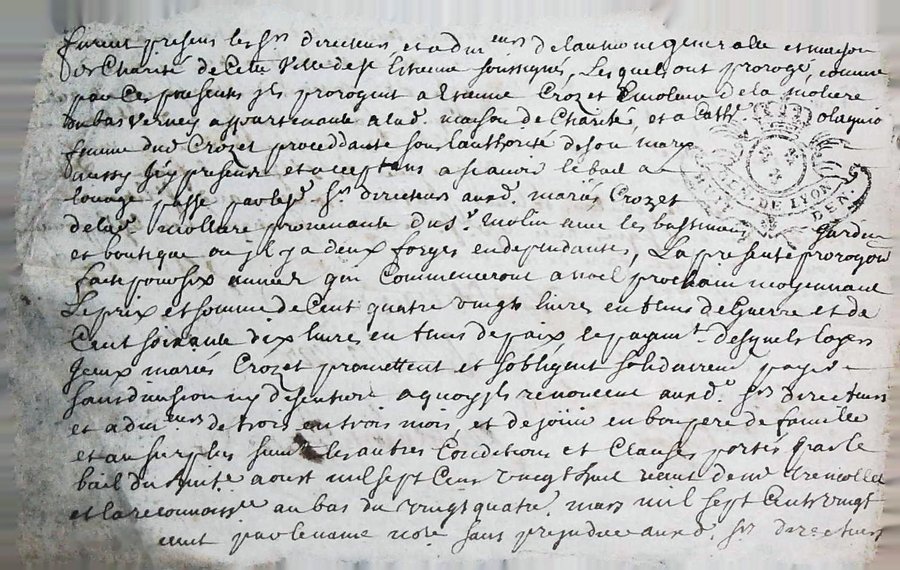 furent presens les srs directeurs et adm eurs de laumone generalle et maison
de Charité de Cette Ville de st Etienne soussignés, Lesquels ont prorogé, comme
par Ces presentes jls prorogent a Etienne Crozet Emoleur de la moliere
du bas Verney appartenante a lad. maison de Charité, et a Cath
femme dud Crozet proceddante sous lauthorité de son mary
aussy jcy presents et aceptans a scavoir le bail a
louage passé par lesd. srs directeurs auxd. mariés Crozet
de lad. moliere provenante du sr. molin avec les bastimens jardin
et boutique ou jl y a deux forges endependantes, La presente prorogaon
faite pour six années qui Commenceront a noel prochain moyennant
Le prix et somme de Cent quatre vingts livres en tems de Guerre et de
Cent soixante dix livres en tems de paix le payemt. desquels loyers
jceux mariés Crozet promettent et sobligent solidairemt payer
sans division ny discution a quoy jls renoncent auxd. srs directeurs
et adm. eurs de trois en trois mois, et de joüir en bon pere de famille
et au surplus suivt les autres Conditions et Clauses portés par le
bail du huit aoust mil sept Cens vingt huit receu de me
et la reconnoisse au bas du vingt quatre mars mil sept Cents vingt
neuf par le mame nore sans prejudice auxd. srs directeurs
DE LYON